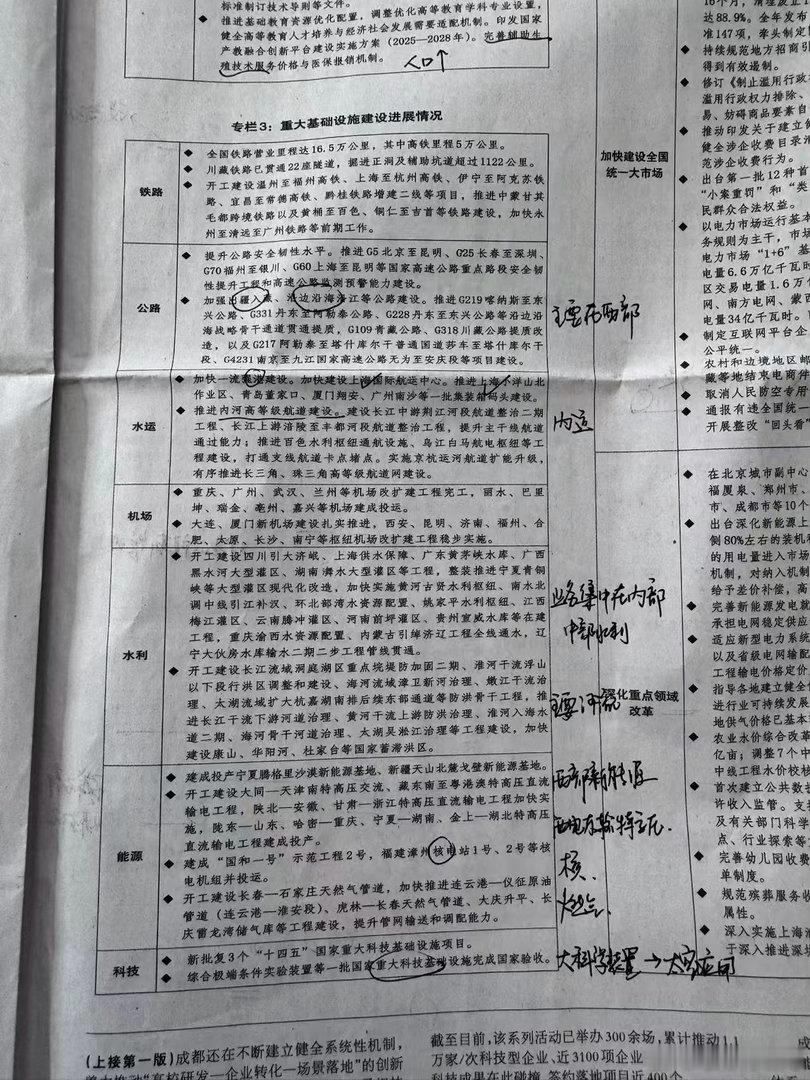 标准制订技术导则等文件。
◆ 推进基础教育资源优化配置，调整优化高等教育学科专业设置，
健全高等教育人才培养与经济社会发展需要适配机制。印发国家
产教融合创新平台建设实施方案（2025—2028年）。完善辅助生
殖技术服务价格与医保报销机制。
人口↑
专栏3：重大基础设施建设进展情况
铁路
◆ 全国铁路营业里程达16.5万公里，其中高铁里程5万公里。
◆ 川藏铁路已贯通22座隧道，掘进正洞及辅助坑道超过1122公里。
◆ 开工建设温州至福州高铁、上海至杭州高铁、伊宁至阿克苏铁
路、宜昌至常德高铁、黔桂铁路增建二线等项目，推进中蒙甘其
毛都跨境铁路以及黄桶至百色、铜仁至吉首等铁路建设，加快永
州至清远至广州铁路等前期工作。
公路
◆ 提升公路安全韧性水平。推进G5北京至昆明、G25长春至深圳、
G70福州至银川、G60上海至昆明等国家高速公路重点路段安全韧
性提升工程和高速公路监测预警能力建设。
◆ 加强出疆入藏、沿边沿海沿江等公路建设。推进G219喀纳斯至东
兴公路、G331丹东至阿勒泰公路、G228丹东至东兴公路等沿边沿
海战略骨干通道贯通提质，G109青藏公路、G318川藏公路提质改
造，以及G217阿勒泰至塔什库尔干普通国道莎车至塔什库尔干
段、G4231南京至九江国家高速公路无为至安庆段等项目建设。
主要在西部
水运
◆ 加快一流港建设。加快建设上海国际航运中心。推进上海洋山北
作业区、青岛董家口、厦门翔安、广州南沙等一批集装箱码头建设。
◆ 推进内河高等级航道建设。建设长江中游荆江河段航道整治二期
工程、长江上游涪陵至丰都河段航道整治工程，提升主干线航道
通过能力；推进百色水利枢纽通航设施、乌江白马航电枢纽等工
程建设，打通支线航道卡点堵点。实施京杭运河航道扩能升级，
有序推进长三角、珠三角高等级航道网建设。
内运
机场
◆ 重庆、广州、武汉、兰州等机场改扩建工程完工，丽水、巴里
坤、瑞金、亳州、嘉兴等机场建成投运。
◆ 大连、厦门新机场建设扎实推进，西安、昆明、济南、福州、合
肥、太原、长沙、南宁等枢纽机场改扩建工程稳步实施。
水利
◆ 开工建设四川引大济岷、上海供水保障、广东黄茅峡水库、广西
黑水河大型灌区、湖南㵲水大型灌区等工程，整装推进宁夏青铜
峡等大型灌区现代化改造，加快实施黄河古贤水利枢纽、南水北
调中线引江补汉、环北部湾水资源配置、姚家平水利枢纽、江西
梅江灌区、云南腾冲灌区、河南前坪灌区、贵州宣威水库等在建
工程，重庆渝西水资源配置、内蒙古引绰济辽工程全线通水，辽
宁大伙房水库输水二期二步工程管线贯通。
◆ 开工建设长江流域洞庭湖区重点垸堤防加固二期、淮河干流浮山
以下段行洪区调整和建设、海河流域漳卫新河治理、嫩江干流治
理、太湖流域扩大杭嘉湖南排后续东部通道等防洪骨干工程，推
进长江干流下游河道治理、黄河干流上游防洪治理、淮河入海水
道二期、海河骨干河道治理、太湖吴淞江治理等工程建设，加快
建设康山、华阳河、杜家台等国家蓄滞洪区。
业务集中在内部
中部水利
主要
能源
◆ 建成投产宁夏腾格里沙漠新能源基地、新疆天山北麓戈壁新能源基地。
◆ 开工建设大同—天津南特高压交流、藏东南至粤港澳特高压直流
输电工程，陕北—安徽、甘肃—浙江特高压直流输电工程加快实
施，陇东—山东、哈密—重庆、宁夏—湖南、金上—湖北特高压
直流输电工程建成投产。
◆ 建成“国和一号”示范工程2号，福建漳州核电站1号、2号等核
电机组并投运。
◆ 开工建设长春—石家庄天然气管道，加快推进连云港—仪征原油
管道（连云港—淮安段）、虎林—长春天然气管道、大庆升平、长
庆雷龙湾储气库等工程建设，提升管网输送和调配能力。
西部新能源
西电东输特高压.
核、
科技
◆ 新批复3个“十四五”国家重大科技基础设施项目。
◆ 综合极端条件实验装置等一批国家重大科技基础设施完成国家验收。
大科学装置→大家应用
（上接第一版）成都还在不断建立健全系统性机制，
着力推动“高校研发—企业转化—场景落地”的创新
截至目前，该系列活动已举办300余场，累计推动1.1
万家/次科技型企业、近3100项企业
科技成果在此碰撞，签约落地项目近400个
16个月，清理废止
达88.9%。全年发布
准147项，牵头制定
加快建设全国
统一大市场
◆ 持续规范地方招商引
得到有效遏制。
◆ 修订《制止滥用行政权
滥用行政权力排除、
易、妨碍商品要素自
◆ 推动印发关于建立健
健全涉企收费目录清
范涉企收费行为。
◆ 出台第一批12种首
“小案重罚”和“类
民群众合法权益。
◆ 以电力市场运行基本
务规则为主干，市场
电力市场“1+6”基
电量6.6万亿千瓦时
区交易电量1.6万
网、南方电网、蒙西
电量34亿千瓦时。
◆ 制定互联网平台企
公平统一。
◆ 农村和边境地区邮
藏等地结束电商件
◆ 取消人民防空专用
◆ 通报有违全国统一
开展整改“回头看”
深化重点领域
改革
◆ 在北京城市副中心
福厦泉、郑州市、
市、成都市等10个
◆ 出台深化新能源上
侧80%左右的装机
的用电量进入市场
机制，对纳入机制
给予差价补偿，高
◆ 完善新能源发电就
承担电网稳定供应
◆ 适应新型电力系统
以及省级电网输配
工程输电价格定价
◆ 指导各地建立健全
进行业可持续发展
地供气价格已基本
◆ 农业水价综合改革
亿亩；调整7个中
中线工程水价校核
◆ 首次建立公共数据
许收入监管。支持
及有关部门科学
点、行业探索等
◆ 完善幼儿园收费
单制度。
◆ 规范殡葬服务收
属性。
◆ 深入实施上海浦
于深入推进深圳